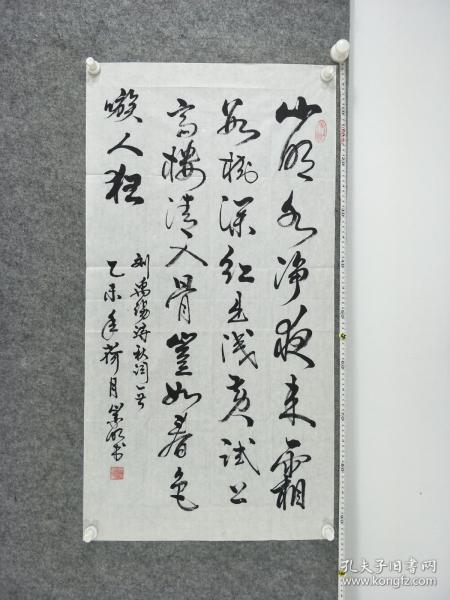 山明水净夜来霜
数树深红出浅黄试上
高楼清入骨岂如春色
嗾人狂
刘禹锡诗秋词一首
乙未年荷月
书
孔夫子旧书网
www.kongfz.com